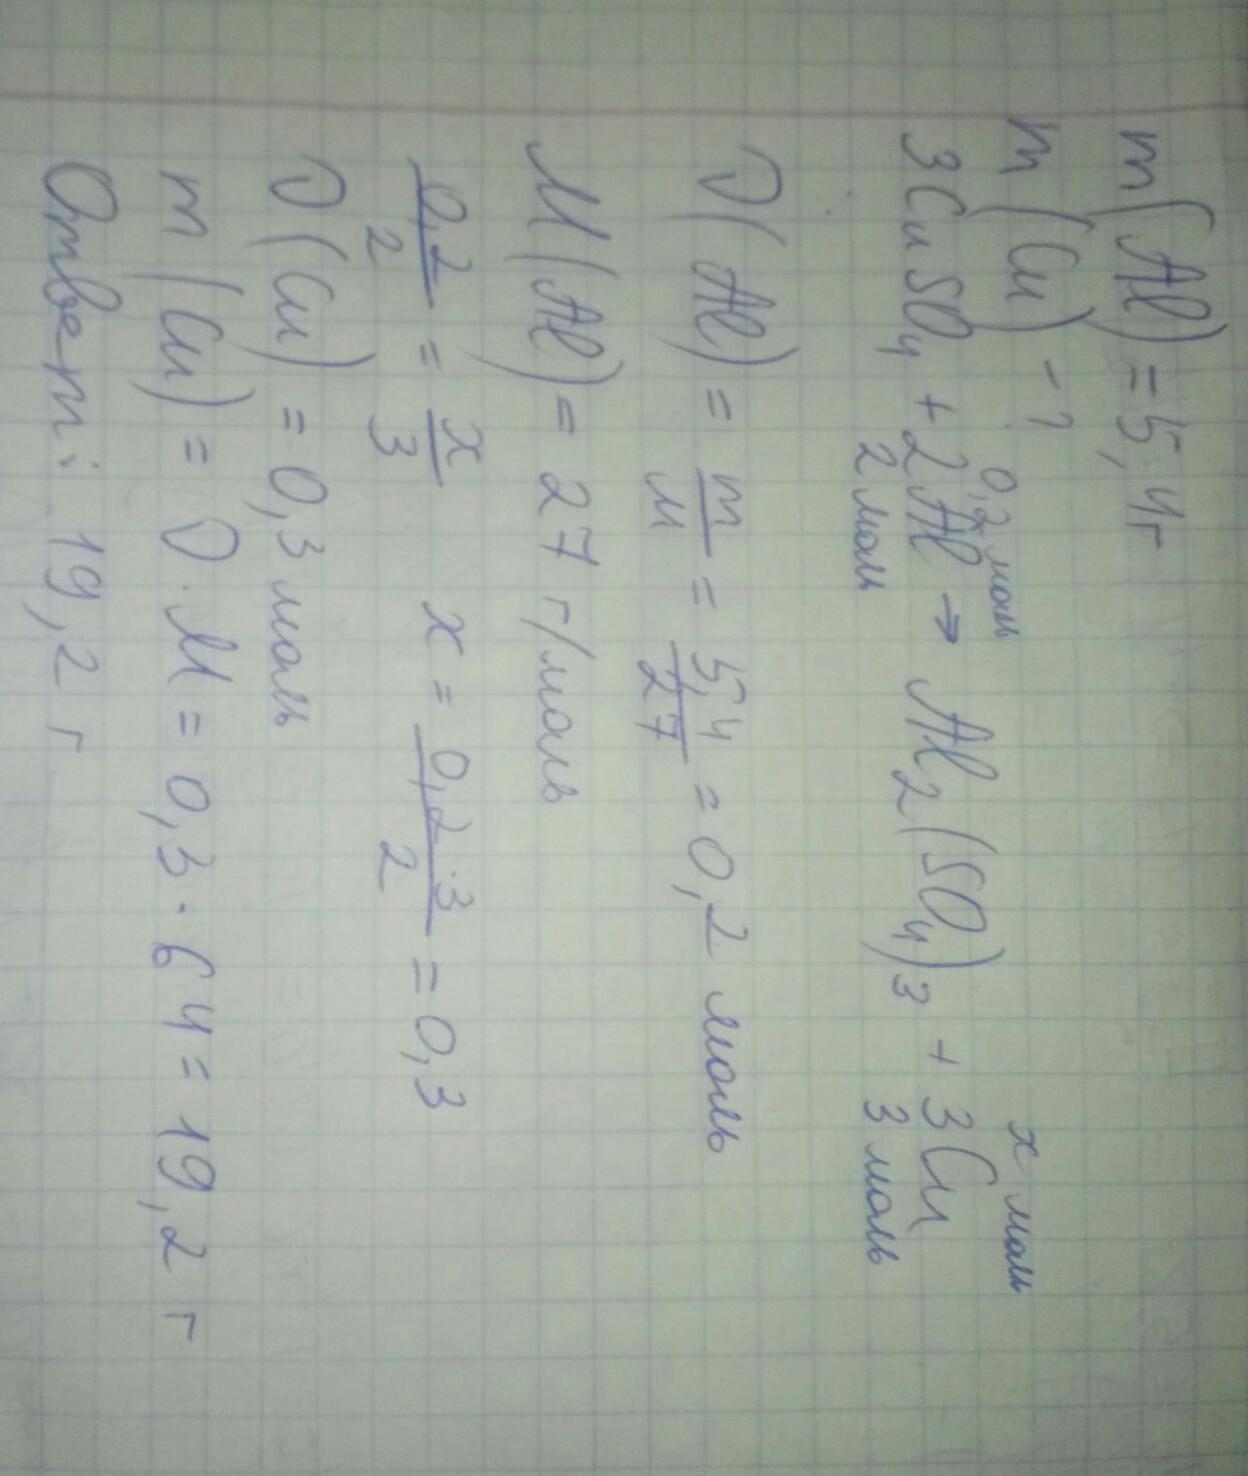 m(Al) = 5,4г
m(Cu) - ?
0,2 моль x моль
3CuSO4 + 2Al → Al2(SO4)3 + 3Cu
2 моль 3 моль
ν(Al) = m/M = 5,4/27 = 0,2 моль
M(Al) = 27 г/моль
0,2/2 = x/3 x = 0,2·3/2 = 0,3
ν(Cu) = 0,3 моль
m(Cu) = ν·M = 0,3·64 = 19,2 г
Ответ: 19,2 г